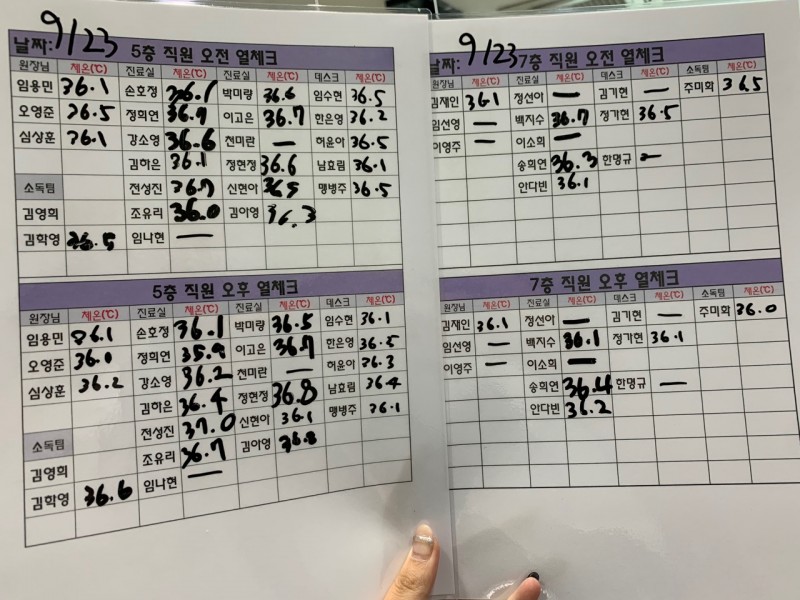 날짜: 9/23 5층 직원 오전 열체크
원장님 체온(℃) 진료실 체온(℃) 진료실 체온(℃) 데스크 체온(℃)
임용민 36.1 손호정 36.1 박미량 36.6 임수현 36.5
오영준 36.5 정희연 36.9 이고은 36.7 한은영 36.2
심상훈 36.1 강소영 36.6 전미란 — 허윤아 36.5
김하은 36.1 정현정 36.6 남효림 36.1
소독팀 전성진 36.7 신현아 36.5 맹병주 36.5
김영희 조유리 36.0 김아영 36.3
김학영 36.5 임나현 —
5층 직원 오후 열체크
원장님 체온(℃) 진료실 체온(℃) 진료실 체온(℃) 데스크 체온(℃)
임용민 36.1 손호정 36.1 박미량 36.5 임수현 36.1
오영준 36.0 정희연 35.9 이고은 36.7 한은영 36.5
심상훈 36.2 강소영 36.2 전미란 — 허윤아 36.3
김하은 36.4 정현정 36.8 남효림 36.4
전성진 37.0 신현아 36.1 맹병주 36.1
소독팀 조유리 36.7 김아영 36.8
김영희 임나현 —
김학영 36.6
날짜: 9/23 7층 직원 오전 열체크
원장님 체온(℃) 진료실 체온(℃) 진료실 체온(℃) 소독팀 체온(℃)
김재인 36.1 정선아 — 김기현 — 주미회 36.5
임선영 — 백지수 36.7 정가현 36.5
이영주 — 이소희 —
송희연 36.3 한명규 —
안다빈 36.1
7층 직원 오후 열체크
원장님 체온(℃) 진료실 체온(℃) 진료실 체온(℃) 소독팀 체온(℃)
김재인 36.1 정선아 — 김기현 — 주미회 36.0
임선영 — 백지수 36.1 정가현 36.1
이영주 — 이소희 —
송희연 36.4 한명규 —
안다빈 36.2